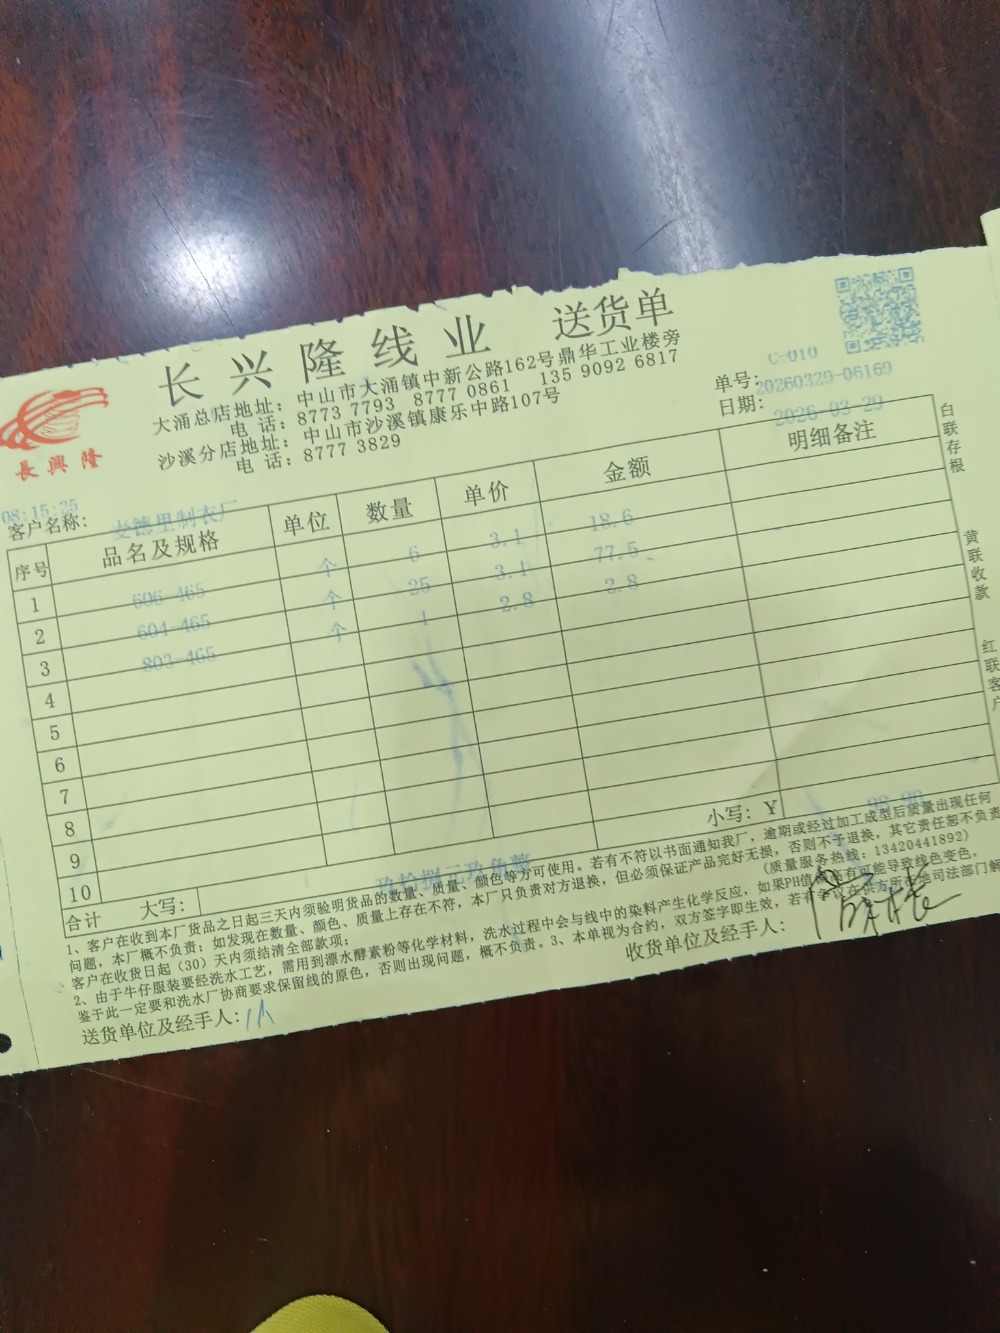 长兴隆线业 送货单
大涌总店地址：中山市大涌镇中新公路162号鼎华工业楼旁
电 话：8773 7793 8777 0861 135 9092 6817
沙溪分店地址：中山市沙溪镇康乐中路107号
电 话：8777 3829
長興隆
C-010
单号：20260329-06169
日期：2026-03-29
08:15:25
客户名称：麦德里制衣厂
序号 品名及规格 单位 数量 单价 金额 明细备注
1 606-465 个 6 3.1 18.6
2 604-465 个 25 3.1 77.5
3 803-465 个 1 2.8 2.8
4
5
6
7
8
9
10
合计 大写：玖拾捌元玖角整 小写：￥98.90
1、客户在收到本厂货品之日起三天内须验明货品的数量、质量、颜色等方可使用。若有不符以书面通知我厂，逾期或经过加工成型后质量出现任何
问题，本厂概不负责；如发现在数量、颜色、质量上存在不符，本厂只负责对方退换，但必须保证产品完好无损，否则不予退换，其它责任恕不负责
客户在收货日起（30）天内须结清全部款项； （质量服务热线：13420441892）
2、由于牛仔服装要经洗水工艺，需用到漂水酵素粉等化学材料，洗水过程中会与线中的染料产生化学反应，如果PH值偏高有可能导致线色变色，
鉴于此一定要和洗水厂协商要求保留线的原色，否则出现问题，概不负责。3、本单视为合约，双方签字即生效，若有争议在供方所在地司法部门解
送货单位及经手人：
收货单位及经手人：
白联存根
黄联收款
红联客户